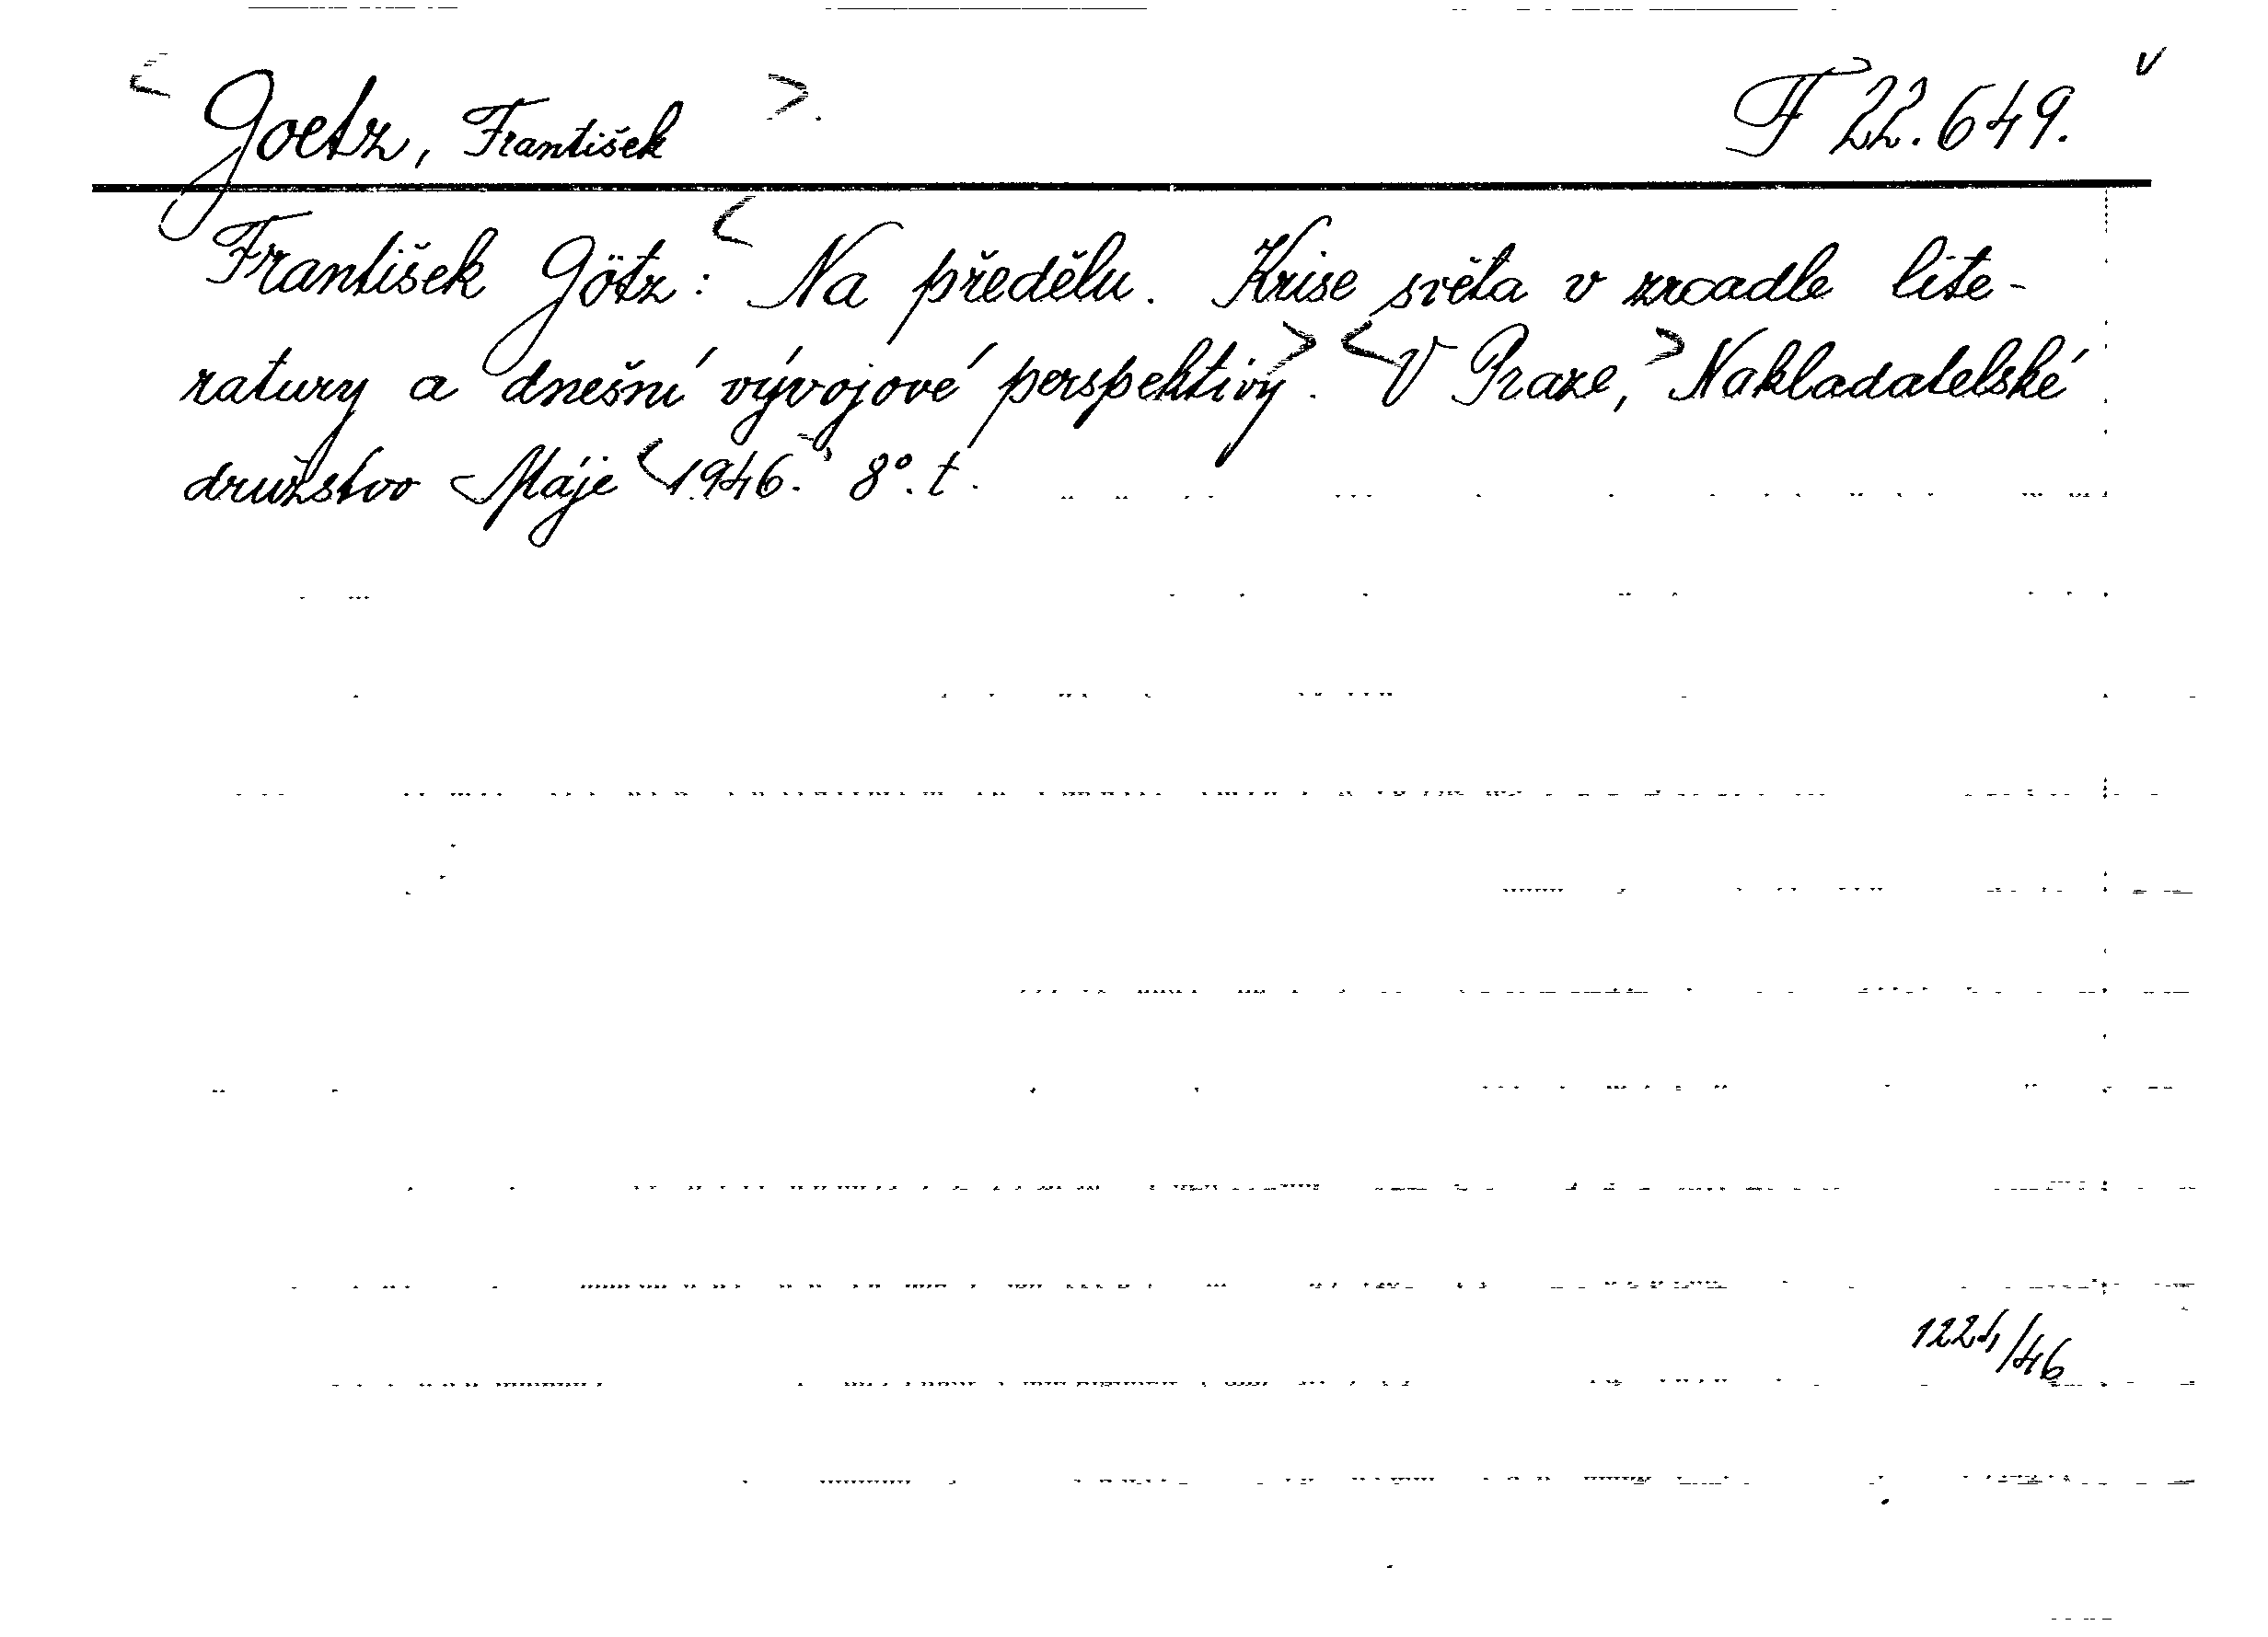 <Goetz, František>. F 22.649. v
František Götz: <Na předělu. Krise světa v zrcadle lite-
ratury a dnešní vývojové perspektivy>. <V Praze,> Nakladatelské
družstvo Máje <1946.> 8°. t.
1224/46